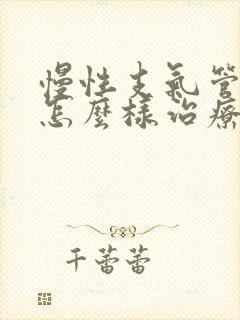 慢性支氣管
怎麼樣治療
千蕾蕾